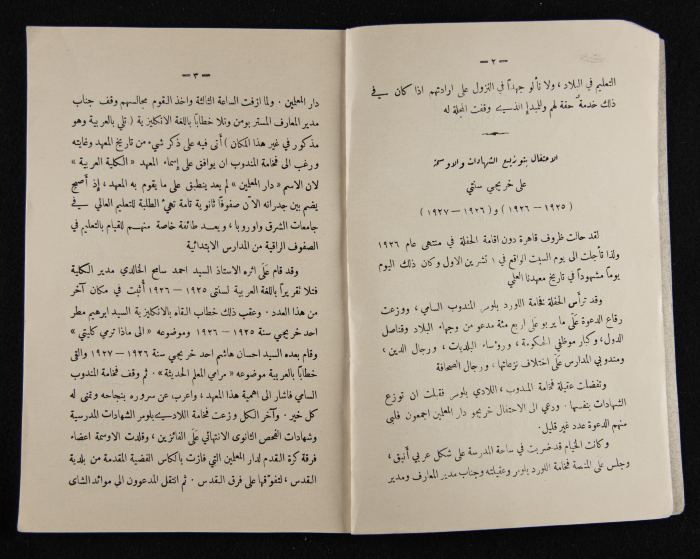 — ٢ —
التعليم في البلاد ، ولا تألو جهداً في النزول على ارادتهم اذا كان في
ذلك خدمة حقة لهم وللمبدإ الذي وقفت المجلة له
الاحتفال بتوزيع الشهادات والاوسمة
على خريجي سنتي
( ١٩٢٥ – ١٩٢٦ ) و ( ١٩٢٦ – ١٩٢٧ )
لقد حالت ظروف قاهرة دون اقامة الحفلة في منتهى عام ١٩٢٦
ولذا تأجلت الى يوم السبت الواقع في ١ تشرين الاول وكان ذلك اليوم
يوماً مشهوداً في تاريخ معهدنا العلمي
وقد ترأس الحفلة فخامة اللورد بلومر المندوب السامي ، ووزعت
رقاع الدعوة على ما يربو على اربع مئة مدعو من وجهاء البلاد وقناصل
الدول ، وكبار موظفي الحكومة ، ورؤساء البلديات ، ورجال الدين ،
ومندوبي المدارس على اختلاف نزعاتها ، ورجال الصحافة
وتفضلت عقيلة فخامة المندوب ، اللادي بلومر فقبلت ان توزع
الشهادات بنفسها . ودعي الى الاحتفال خريجو دار المعلمين اجمعون فلبى
منهم الدعوة عدد غير قليل .
وكانت الخيام قد ضربت في ساحة المدرسة على شكل عربي أنيق ،
وجلس على المنصة فخامة اللورد بلومر وعقيلته وجناب مدير المعارف ومدير
— ٣ —
دار المعلمين . ولما ازفت الساعة الثالثة واخذ القوم مجالسهم وقف جناب
مدير المعارف المستر بومن وتلا خطاباً باللغة الانكليزية ( تلي بالعربية وهو
مذكور في غير هذا المكان ) أتى فيه على ذكر شيء من تاريخ المعهد وغايته
ورغب الى فخامة المندوب ان يوافق على إسماء المعهد « الكلية العربية »
لان الاسم « دار المعلمين » لم يعد ينطبق على ما يقوم به المعهد ، إذ أصبح
يضم بين جدرانه الآن صفوفاً ثانوية تامة تهيئ الطلبة للتعليم العالي في
جامعات الشرق واوروبا ، ويعد طائفة خاصة منهم للقيام بالتعليم في
الصفوف الراقية من المدارس الابتدائية
وقد قام على اثره الاستاذ السيد احمد سامح الخالدي مدير الكلية
فتلا تقريراً باللغة العربية لسنتى ١٩٢٥ – ١٩٢٦ أثبت في مكان آخر
من هذا العدد . وعقب ذلك خطاب القاه بالانكليزية السيد ابرهيم مطر
احد خريجي سنة ١٩٢٥ – ١٩٢٦ وموضوعه « الى ماذا ترمي كليتي »
وقام بعده السيد احسان هاشم احد خريجي سنة ١٩٢٦ – ١٩٢٧ والقى
خطاباً بالعربية موضوعه « مرامي المعلم الحديثة » . ثم وقف فخامة المندوب
السامي فاشار الى اهمية هذا المعهد ، واعرب عن سروره بنجاحه وتمنى له
كل خير . وآخر الكل وزعت فخامة اللادي بلومر الشهادات المدرسية
وشهادات الفحص الثانوى الانتهائي على الفائزين ، وقلدت الاوسمة اعضاء
فرقة كرة القدم لدار المعلمين التي فازت بالكاس الفضية المقدمة من بلدية
القدس ، لتفوقها على فرق القدس . ثم انتقل المدعوون الى موائد الشاى